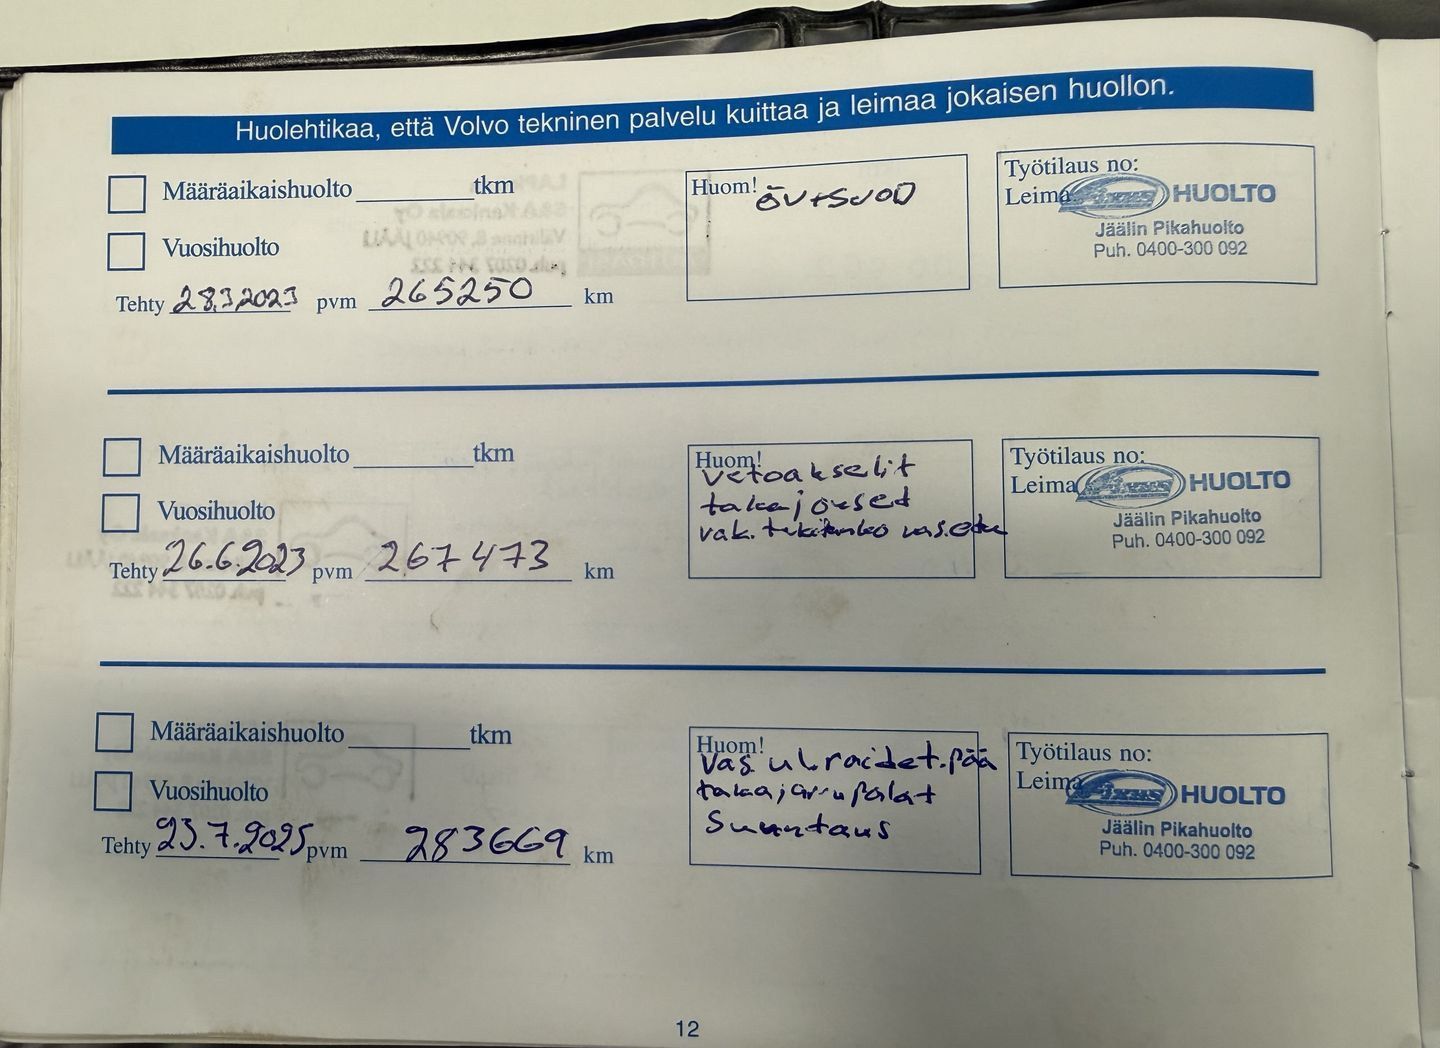 Huolehtikaa, että Volvo tekninen palvelu kuittaa ja leimaa jokaisen huollon.
Määräaikaishuolto tkm
Vuosihuolto
Tehty 28.3.2023 pvm 265250 km
Huom!
ÖV+SUOD
Työtilaus no:
Leima
HUOLTO
Jäälin Pikahuolto
Puh. 0400-300 092
Määräaikaishuolto tkm
Vuosihuolto
Tehty 26.6.2023 pvm 267473 km
Huom!
vetoakselit
takajouset
vak.
Työtilaus no:
Leima
Fixus HUOLTO
Jäälin Pikahuolto
Puh. 0400-300 092
Määräaikaishuolto tkm
Vuosihuolto
Tehty 23.7.2025 pvm 283669 km
Huom!
Vas ulk raidet.pää
takajarrupalat
Suuntaus
Työtilaus no:
Leima
Fixus HUOLTO
Jäälin Pikahuolto
Puh. 0400-300 092
12